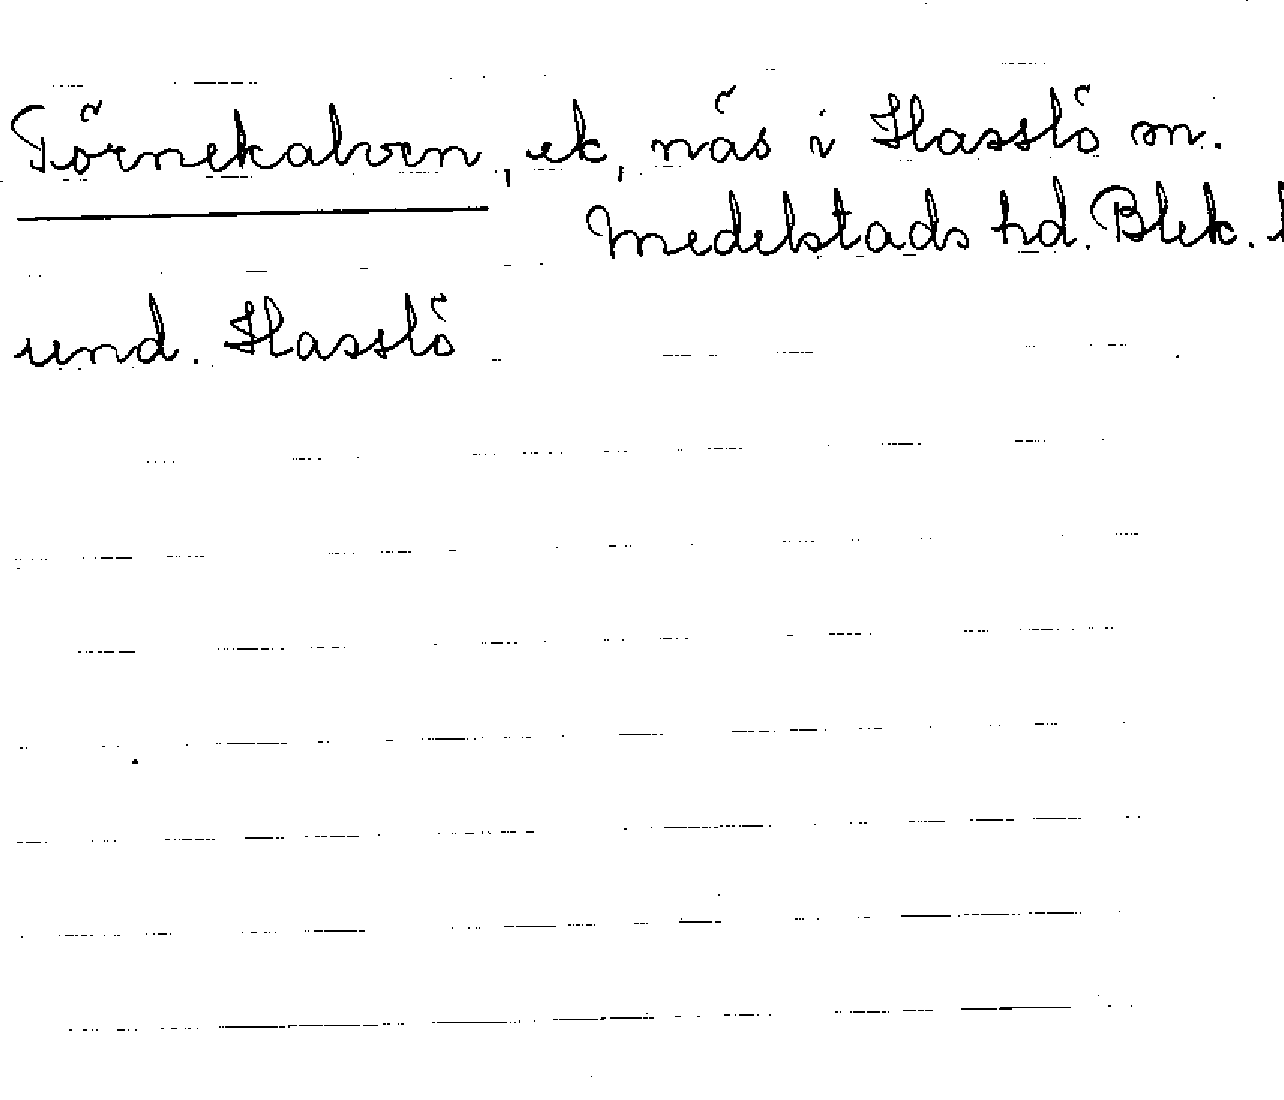 Törnekalven, ek, näs i Hasslö sn.
Medelstads hd. Blek. l
und. Hasslö